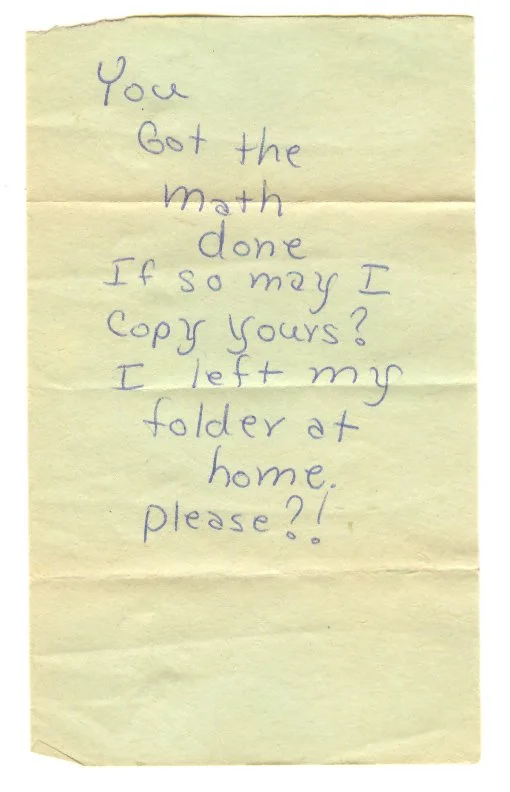 You
Got the
math
done
If so may I
Copy yours?
I left my
folder at
home.
please?!